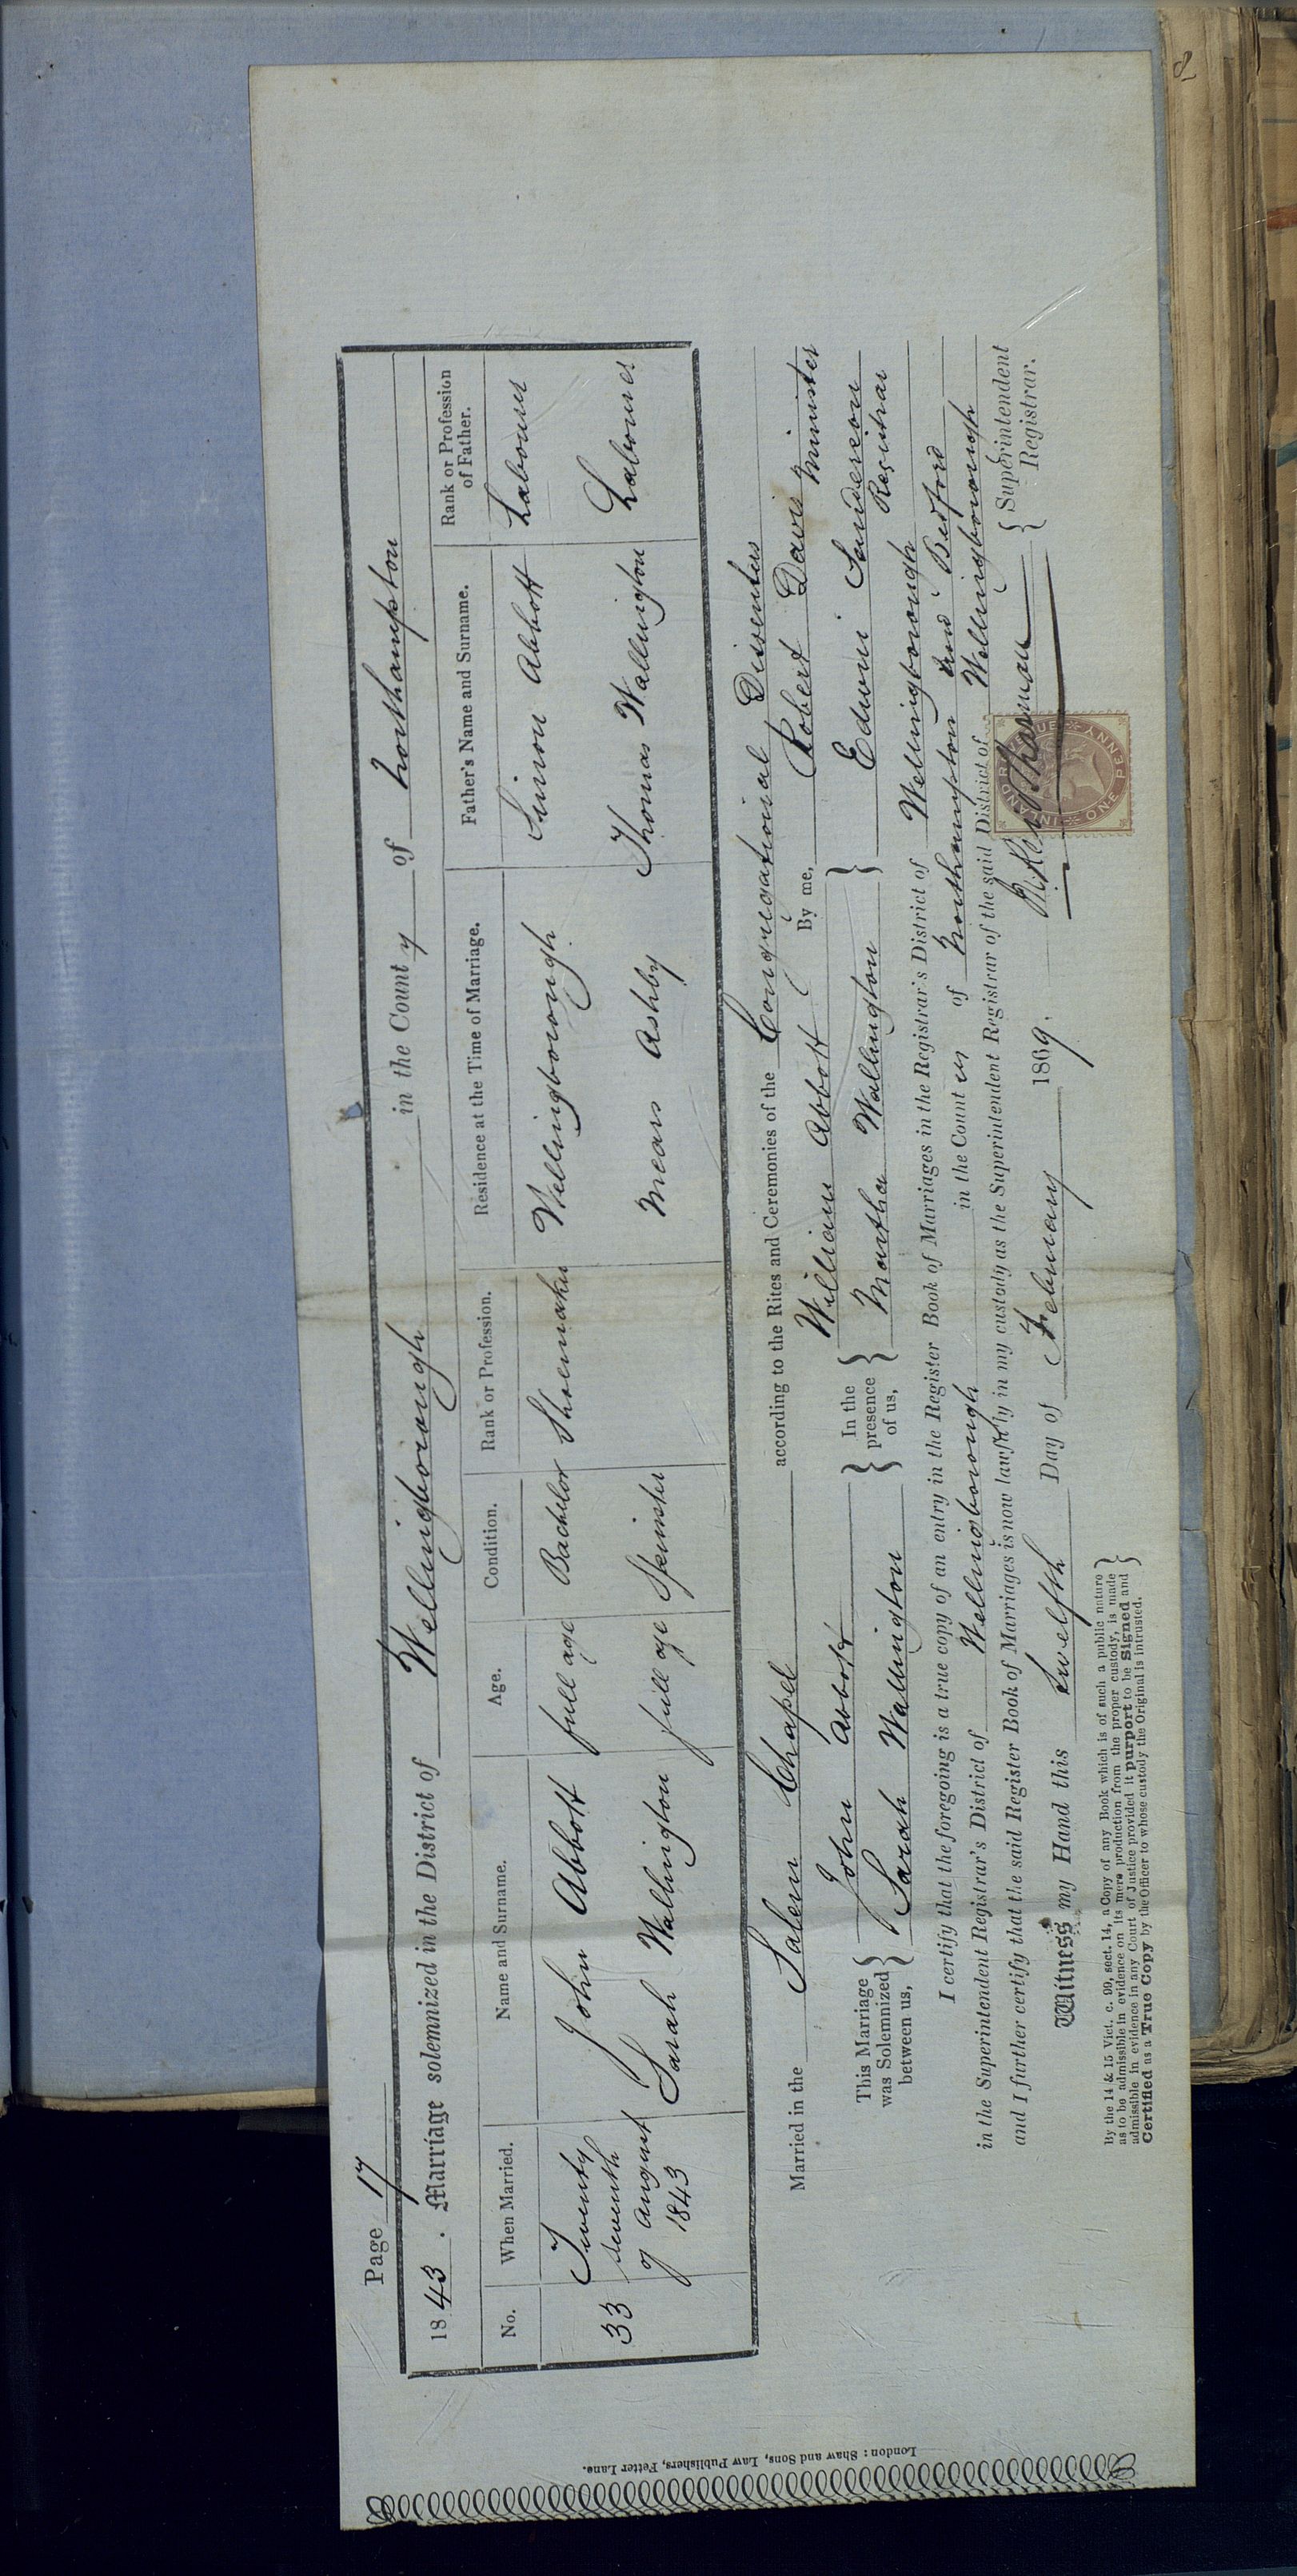 Page 17
1843. Marriage solemnized in the District of Wellingborough in the County of Northampton
No. When Married. Name and Surname. Age. Condition. Rank or Profession. Residence at the Time of Marriage. Father's Name and Surname. Rank or Profession of Father.
33 Twenty seventh of August 1843
John Abbott full age Bachelor Shoemaker Wellingborough Simon Abbott Labourer
Sarah Wallington full age Spinster Mears Ashby Thomas Wallington Labourer
Married in the Salem Chapel according to the Rites and Ceremonies of the Congregational Dissenters
This Marriage was Solemnized between us, { John Abbott
Sarah Wallington } In the presence of us, { William Abbott
Martha Wallington } By me, Robert Davis Minister
Edwin Sanderson Registrar
I certify that the foregoing is a true copy of an entry in the Register Book of Marriages in the Registrar's District of Wellingborough
in the Superintendent Registrar's District of Wellingborough in the Count ies of Northampton and Bedford
and I further certify that the said Register Book of Marriages is now lawfully in my custody as the Superintendent Registrar of the said District of Wellingborough
Witness my Hand this twelfth Day of February 1869. { Superintendent Registrar.
INLAND REVENUE ONE PENNY
By the 14 & 15 Vict. c. 99, sect. 14, a Copy of any Book which is of such a public nature
as to be admissible in evidence on its mere production from the proper custody, is made
admissible in evidence in any Court of Justice provided it purport to be Signed and
Certified as a True Copy by the Officer to whose custody the Original is intrusted.
London: Shaw and Sons, Law Publishers, Fetter Lane.
8